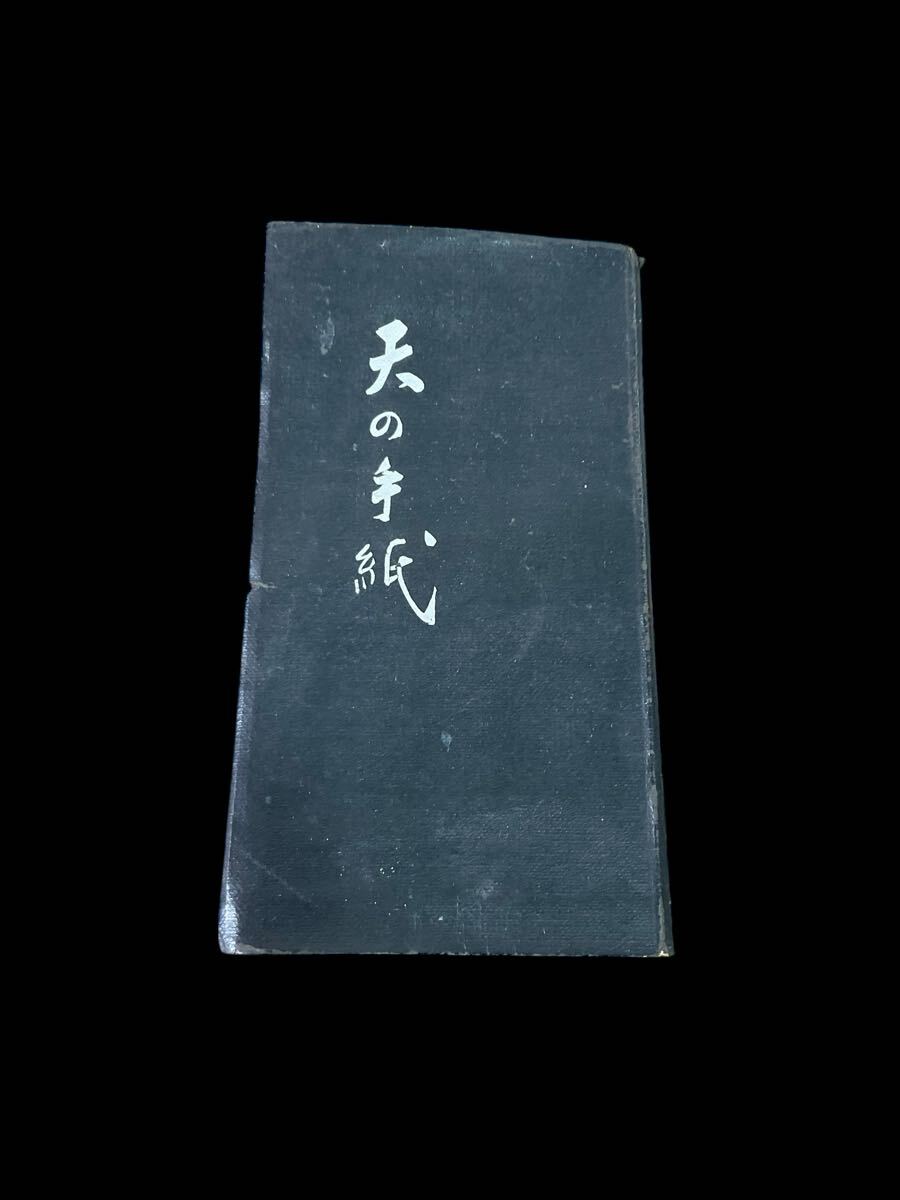 天の手紙